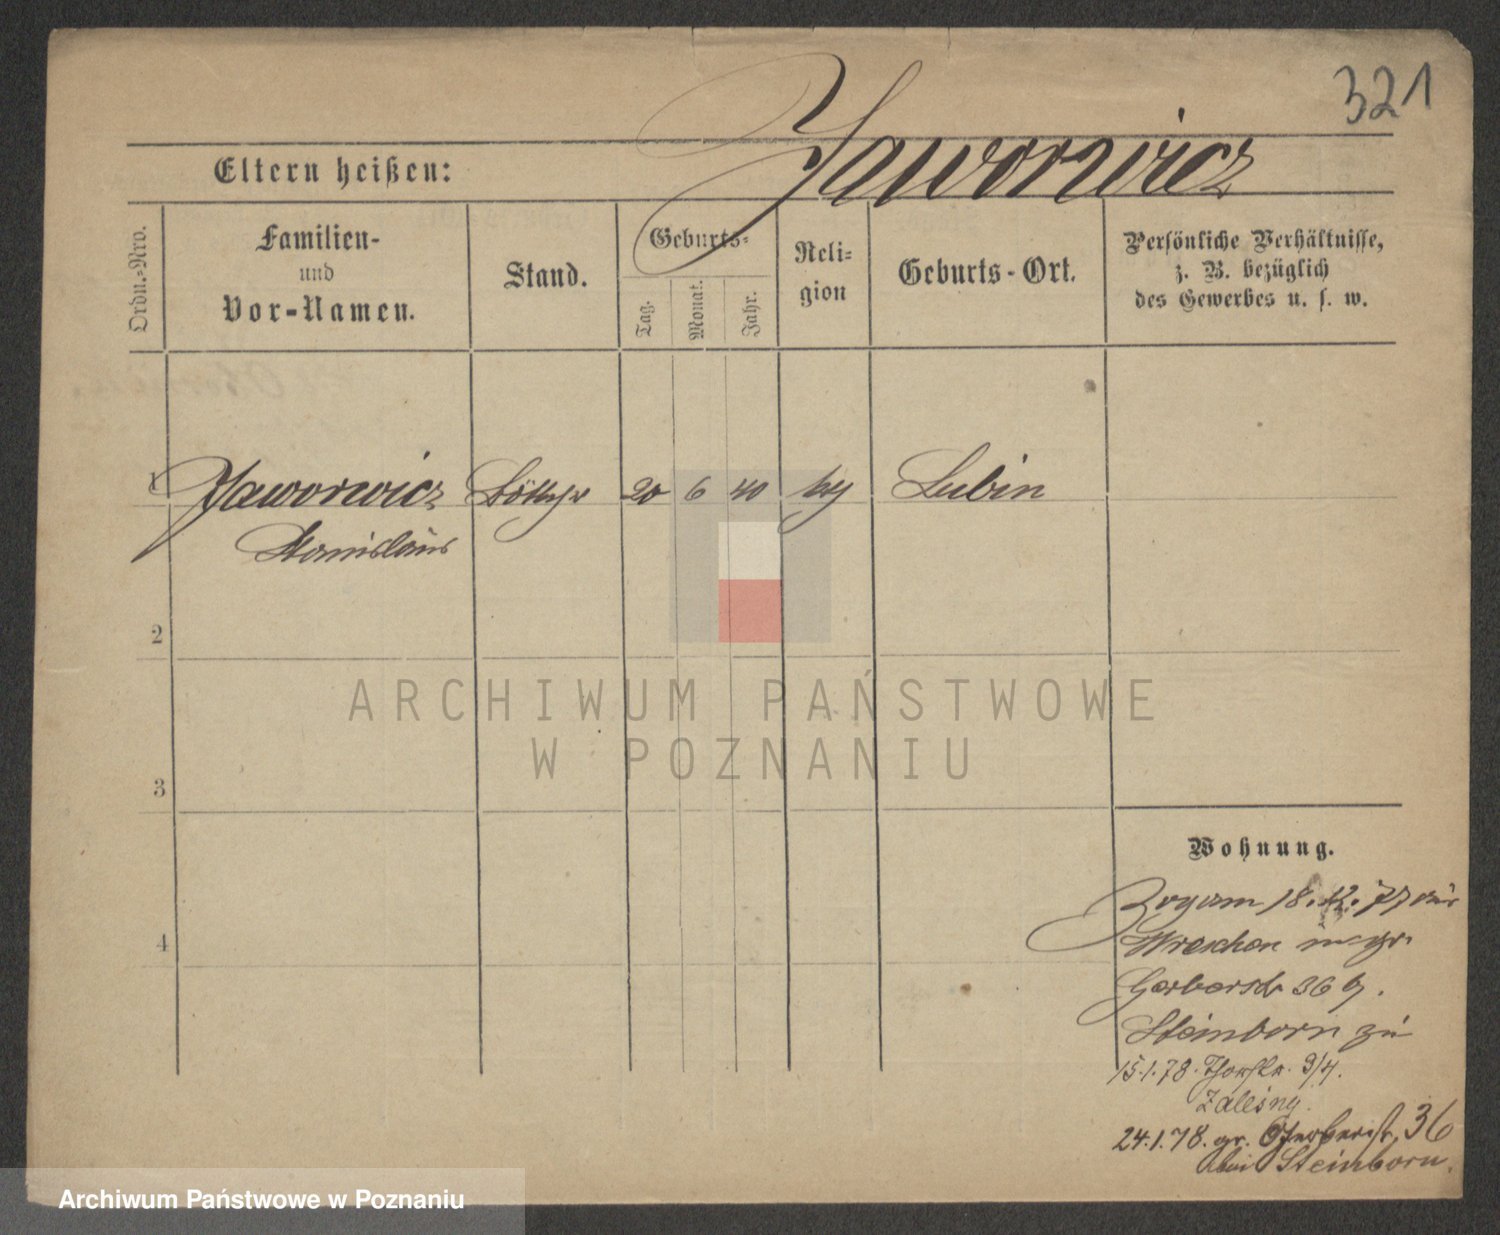 321
Jaworowicz
Eltern heißen:
Ordn.-Nro.
Familien-
und
Vor-Namen.
Stand.
Geburts-
Tag.
Monat.
Jahr.
Reli-
gion
Geburts-Ort.
Persönliche Verhältnisse,
z. B. bezüglich
des Gewerbes u. s. w.
1 Jaworowicz 20 6 40 Lubin
Stanislaus
2
3
4
ARCHIWUM PAŃSTWOWE
W POZNANIU
Wohnung.
Zog am 18.12.77 aus
Wreschen in gr.
Gerberstr 36 b.
Steinborn zu
15.1.78. 3/4.
Zalesny.
24.1.78. gr. Gerberstr. 36
bei Steinborn.
Archiwum Państwowe w Poznaniu